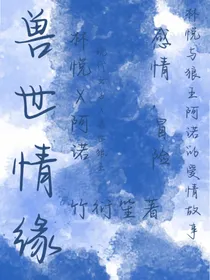 兽世情缘
科悦X阿诺
感情 冒险
科悦与狼王阿诺的爱情故事
竹衍笙着